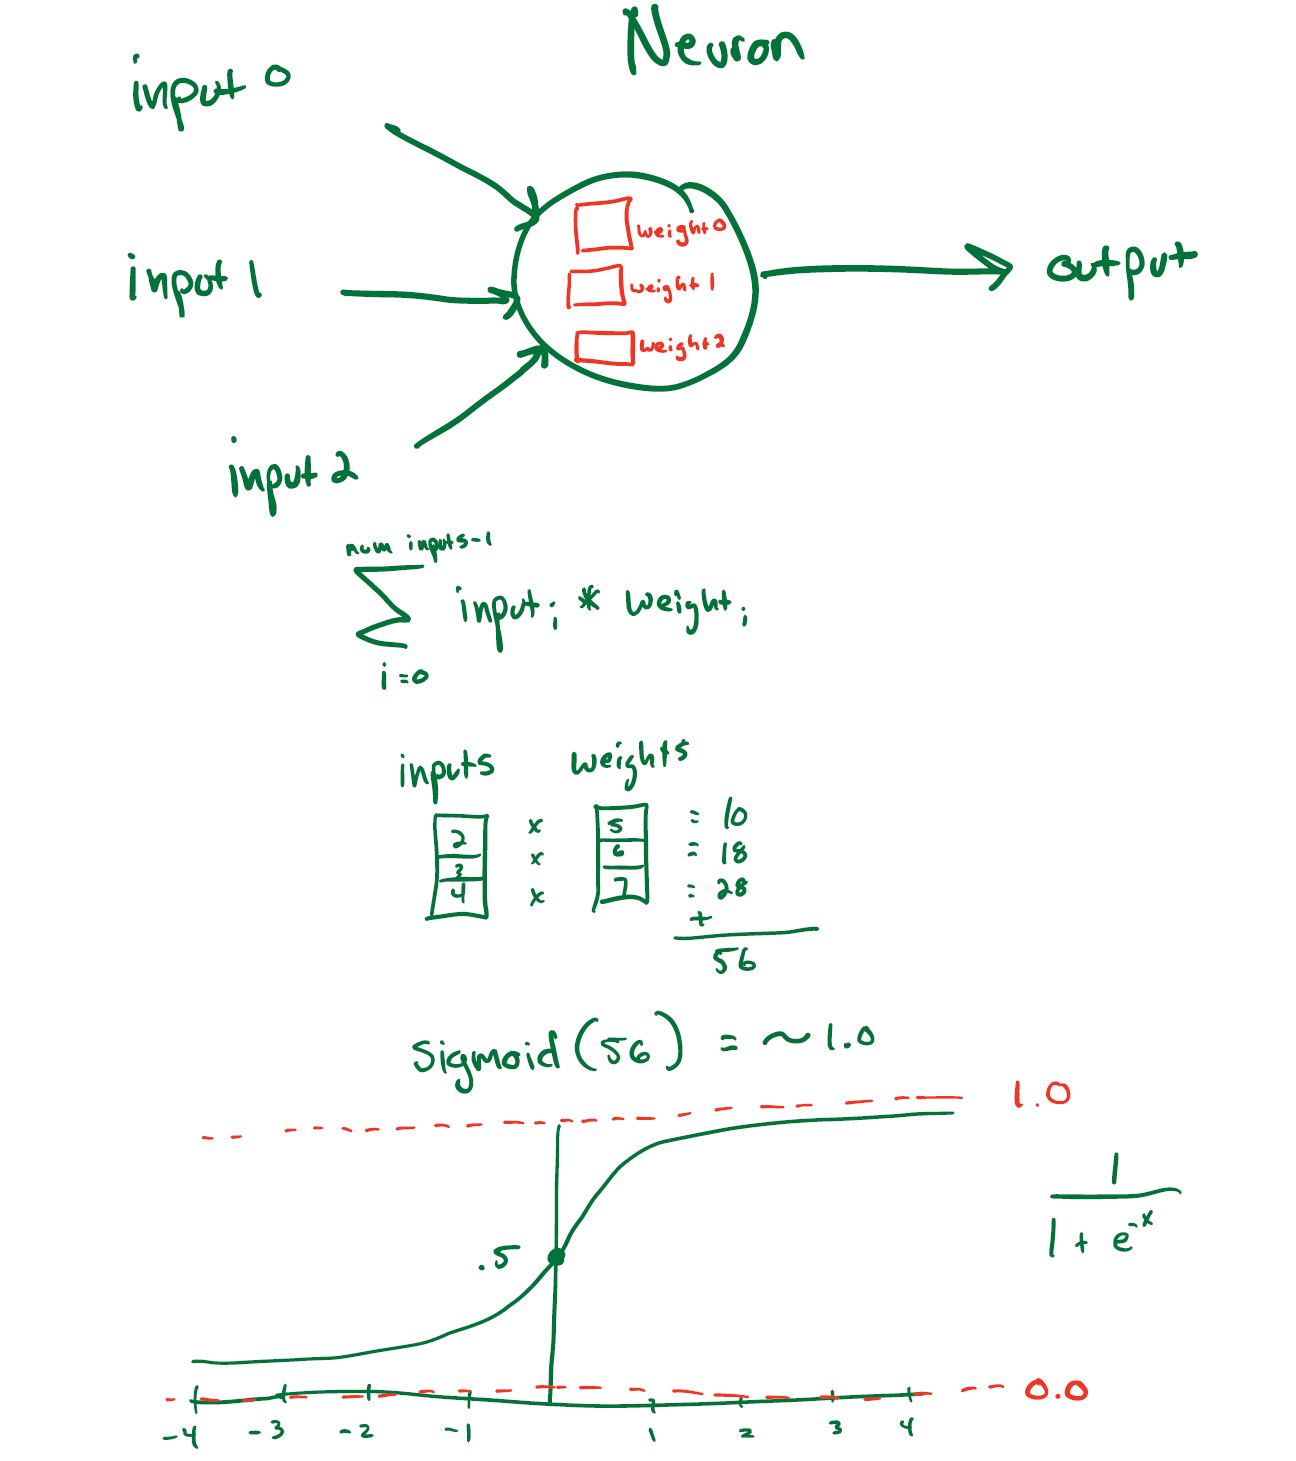 Neuron
input 0
input 1
input 2
weight 0
weight 1
weight 2
output
num inputs-1
∑ inputᵢ * weightᵢ
i=0
inputs weights
2 x 5 = 10
3 x 6 = 18
4 x 7 = 28
+
56
Sigmoid(56) = ~1.0
1.0
.5
1
1 + e⁻ˣ
0.0
-4 -3 -2 -1 1 2 3 4